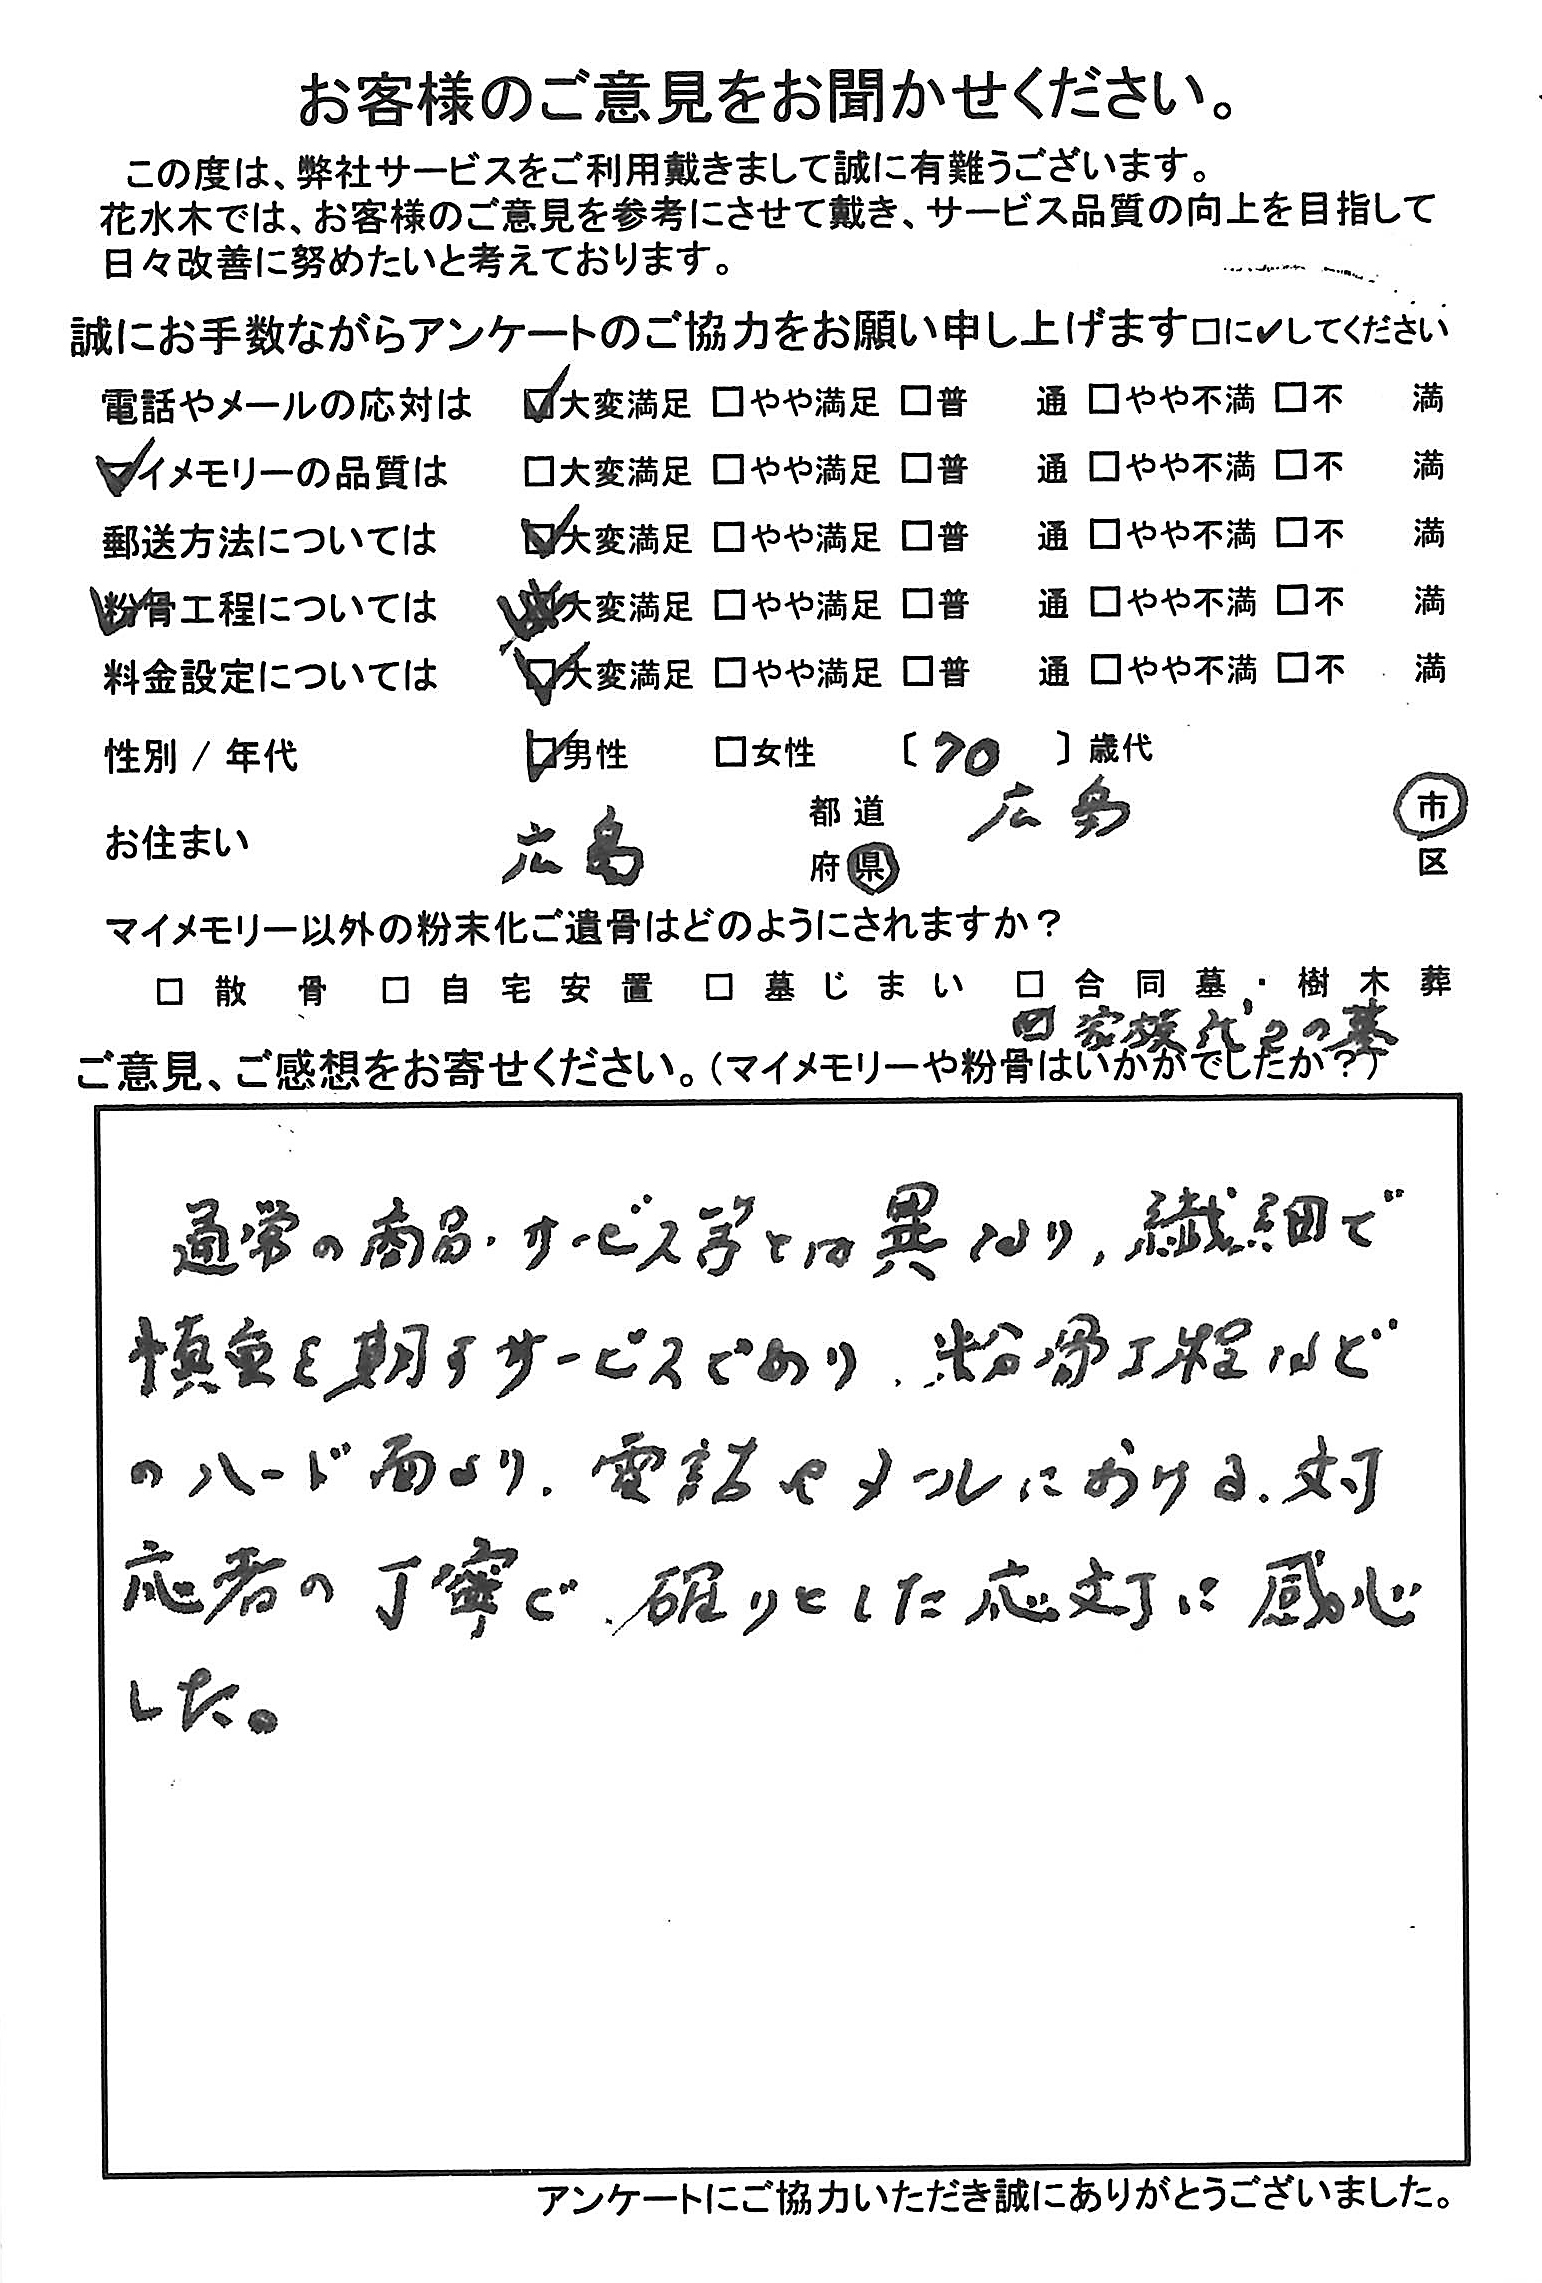 お客様のご意見をお聞かせください。
この度は、弊社サービスをご利用戴きまして誠に有難うございます。
花水木では、お客様のご意見を参考にさせて戴き、サービス品質の向上を目指して
日々改善に努めたいと考えております。
誠にお手数ながらアンケートのご協力をお願い申し上げます□に✔してください
電話やメールの応対は ☑大変満足 □やや満足 □普 通 □やや不満 □不 満
マイメモリーの品質は □大変満足 □やや満足 □普 通 □やや不満 □不 満
郵送方法については ☑大変満足 □やや満足 □普 通 □やや不満 □不 満
粉骨工程については 大変満足 □やや満足 □普 通 □やや不満 □不 満
料金設定については ☑大変満足 □やや満足 □普 通 □やや不満 □不 満
性別 / 年代 ☑男性 □女性 〔 70 〕歳代
お住まい 広島 都道府県 広島 市区
マイメモリー以外の粉末化ご遺骨はどのようにされますか？
□ 散骨 □ 自宅安置 □ 墓じまい □ 合同墓・樹木葬
☑ 家族代々の墓
ご意見、ご感想をお寄せください。（マイメモリーや粉骨はいかがでしたか？）
通常の商品・サービス等とは異なり、繊細で
慎重を期すサービスであり、粉骨工程など
のハード面より、電話やメールにおける、対
応者の丁寧で、確りとした応対に感心
した。
アンケートにご協力いただき誠にありがとうございました。